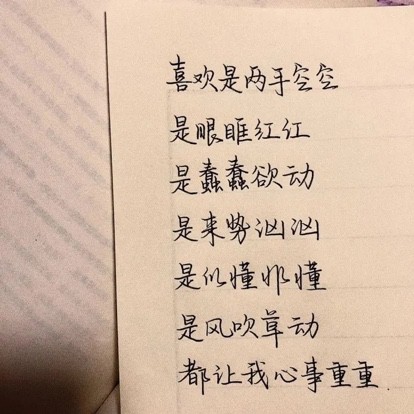 喜欢是两手空空
是眼眶红红
是蠢蠢欲动
是来势汹汹
是似懂非懂
是风吹草动
都让我心事重重